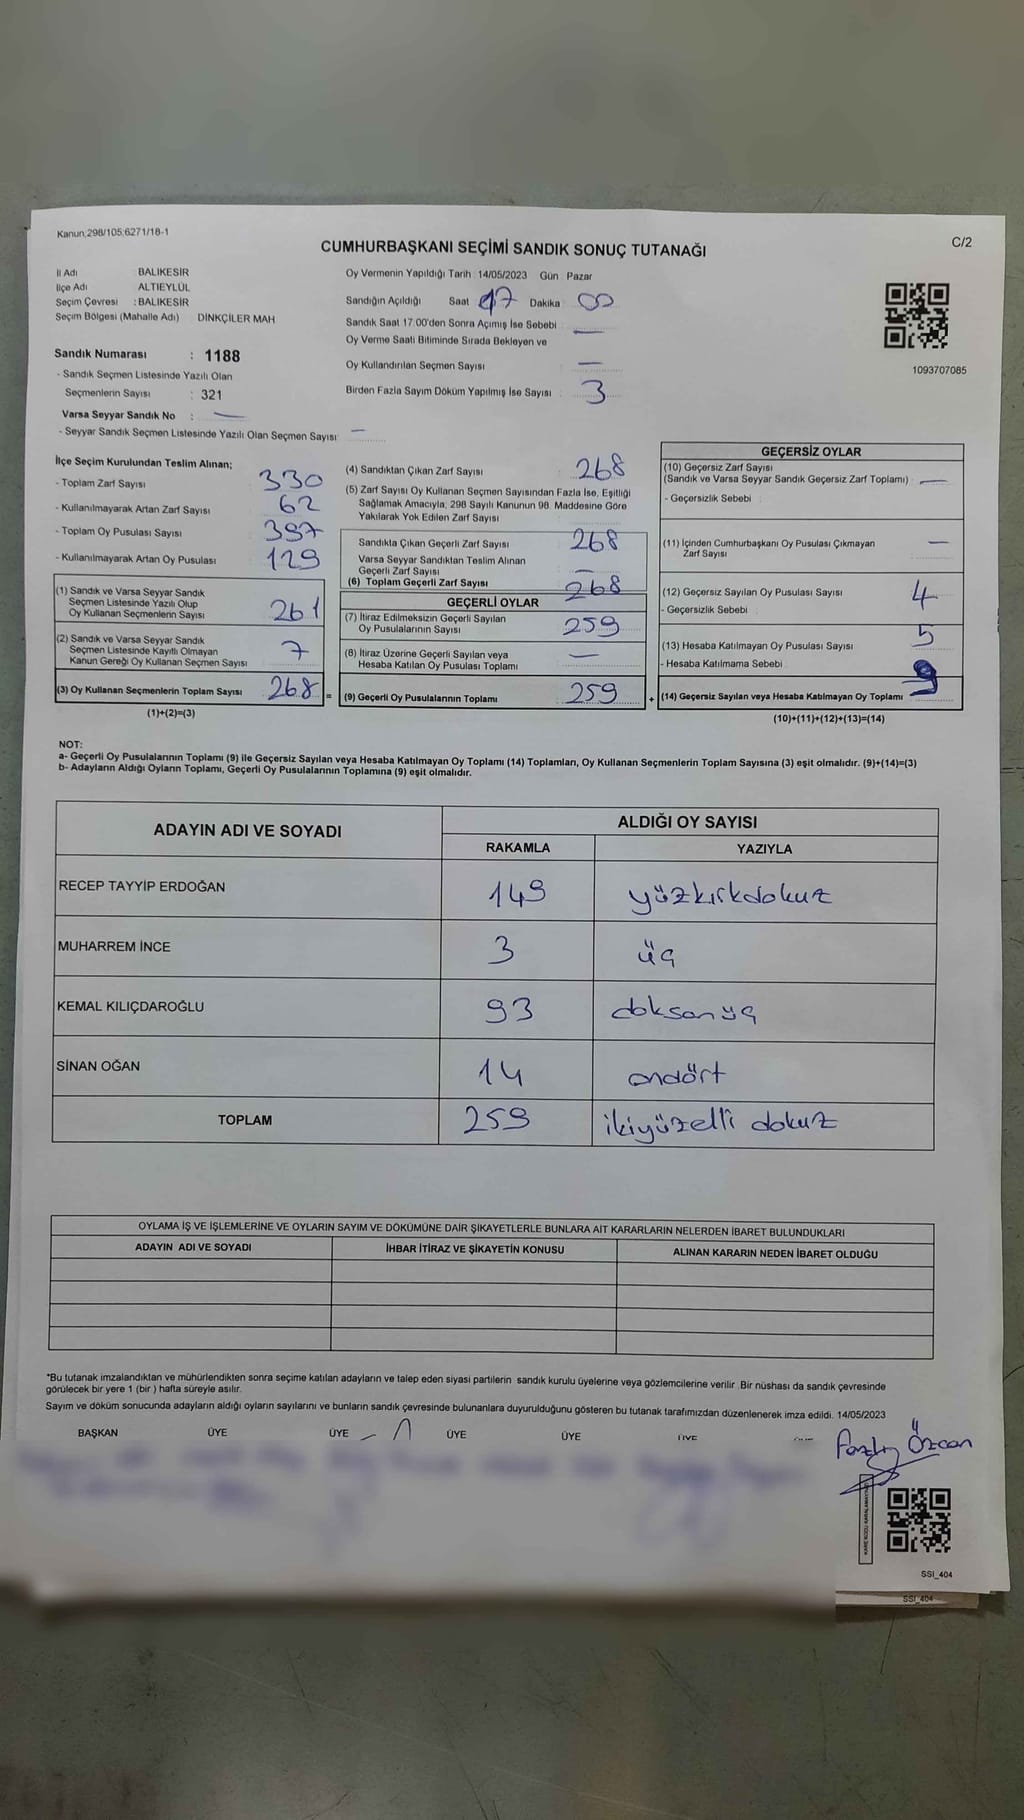 Kanun,298/105,6271/18-1
C/2
CUMHURBAŞKANI SEÇİMİ SANDIK SONUÇ TUTANAĞI
İl Adı BALIKESİR
İlçe Adı ALTIEYLÜL
Seçim Çevresi : BALIKESİR
Seçim Bölgesi (Mahalle Adı) DİNKÇİLER MAH
Sandık Numarası : 1188
- Sandık Seçmen Listesinde Yazılı Olan
Seçmenlerin Sayısı : 321
Varsa Seyyar Sandık No : —
- Seyyar Sandık Seçmen Listesinde Yazılı Olan Seçmen Sayısı —
Oy Vermenin Yapıldığı Tarih : 14/05/2023 Gün Pazar
Sandığın Açıldığı Saat 17 Dakika 00
Sandık Saat 17:00'den Sonra Açımış İse Sebebi —
Oy Verme Saati Bitiminde Sırada Bekleyen ve
Oy Kullandırılan Seçmen Sayısı —
Birden Fazla Sayım Döküm Yapılmış İse Sayısı 3
1093707085
İlçe Seçim Kurulundan Teslim Alınan;
- Toplam Zarf Sayısı 330
- Kullanılmayarak Artan Zarf Sayısı 62
- Toplam Oy Pusulası Sayısı 397
- Kullanılmayarak Artan Oy Pusulası 129
(1) Sandık ve Varsa Seyyar Sandık
Seçmen Listesinde Yazılı Olup
Oy Kullanan Seçmenlerin Sayısı 261
(2) Sandık ve Varsa Seyyar Sandık
Seçmen Listesinde Kayıtlı Olmayan
Kanun Gereği Oy Kullanan Seçmen Sayısı 7
(3) Oy Kullanan Seçmenlerin Toplam Sayısı 268 =
(1)+(2)=(3)
(4) Sandıktan Çıkan Zarf Sayısı 268
(5) Zarf Sayısı Oy Kullanan Seçmen Sayısından Fazla İse, Eşitliği
Sağlamak Amacıyla, 298 Sayılı Kanunun 98. Maddesine Göre
Yakılarak Yok Edilen Zarf Sayısı
Sandıkta Çıkan Geçerli Zarf Sayısı 268
Varsa Seyyar Sandıktan Teslim Alınan
Geçerli Zarf Sayısı —
(6) Toplam Geçerli Zarf Sayısı 268
GEÇERLİ OYLAR
(7) İtiraz Edilmeksizin Geçerli Sayılan
Oy Pusulalarının Sayısı 259
(8) İtiraz Üzerine Geçerli Sayılan veya
Hesaba Katılan Oy Pusulası Toplamı —
(9) Geçerli Oy Pusulalarının Toplamı 259 +
GEÇERSİZ OYLAR
(10) Geçersiz Zarf Sayısı
(Sandık ve Varsa Seyyar Sandık Geçersiz Zarf Toplamı) : —
- Geçersizlik Sebebi :
(11) İçinden Cumhurbaşkanı Oy Pusulası Çıkmayan
Zarf Sayısı —
(12) Geçersiz Sayılan Oy Pusulası Sayısı 4
- Geçersizlik Sebebi :
(13) Hesaba Katılmayan Oy Pusulası Sayısı 5
- Hesaba Katılmama Sebebi :
(14) Geçersiz Sayılan veya Hesaba Katılmayan Oy Toplamı 9
(10)+(11)+(12)+(13)=(14)
NOT:
a- Geçerli Oy Pusulalarının Toplamı (9) ile Geçersiz Sayılan veya Hesaba Katılmayan Oy Toplamı (14) Toplamları, Oy Kullanan Seçmenlerin Toplam Sayısına (3) eşit olmalıdır. (9)+(14)=(3)
b- Adayların Aldığı Oyların Toplamı, Geçerli Oy Pusulalarının Toplamına (9) eşit olmalıdır.
ADAYIN ADI VE SOYADI
ALDIĞI OY SAYISI
RAKAMLA YAZIYLA
RECEP TAYYİP ERDOĞAN 149 yüzkırkdokuz
MUHARREM İNCE 3 üç
KEMAL KILIÇDAROĞLU 93 doksanüç
SİNAN OĞAN 14 ondört
TOPLAM 259 ikiyüzelli dokuz
OYLAMA İŞ VE İŞLEMLERİNE VE OYLARIN SAYIM VE DÖKÜMÜNE DAİR ŞİKAYETLERLE BUNLARA AİT KARARLARIN NELERDEN İBARET BULUNDUKLARI
ADAYIN ADI VE SOYADI İHBAR İTİRAZ VE ŞİKAYETİN KONUSU ALINAN KARARIN NEDEN İBARET OLDUĞU
*Bu tutanak imzalandıktan ve mühürlendikten sonra seçime katılan adayların ve talep eden siyasi partilerin sandık kurulu üyelerine veya gözlemcilerine verilir. Bir nüshası da sandık çevresinde
görülecek bir yere 1 (bir ) hafta süreyle asılır.
Sayım ve döküm sonucunda adayların aldığı oyların sayılarını ve bunların sandık çevresinde bulunanlara duyurulduğunu gösteren bu tutanak tarafımızdan düzenlenerek imza edildi. 14/05/2023
BAŞKAN ÜYE ÜYE ÜYE ÜYE ÜYE
Özcan
SSİ_404
SSİ_404